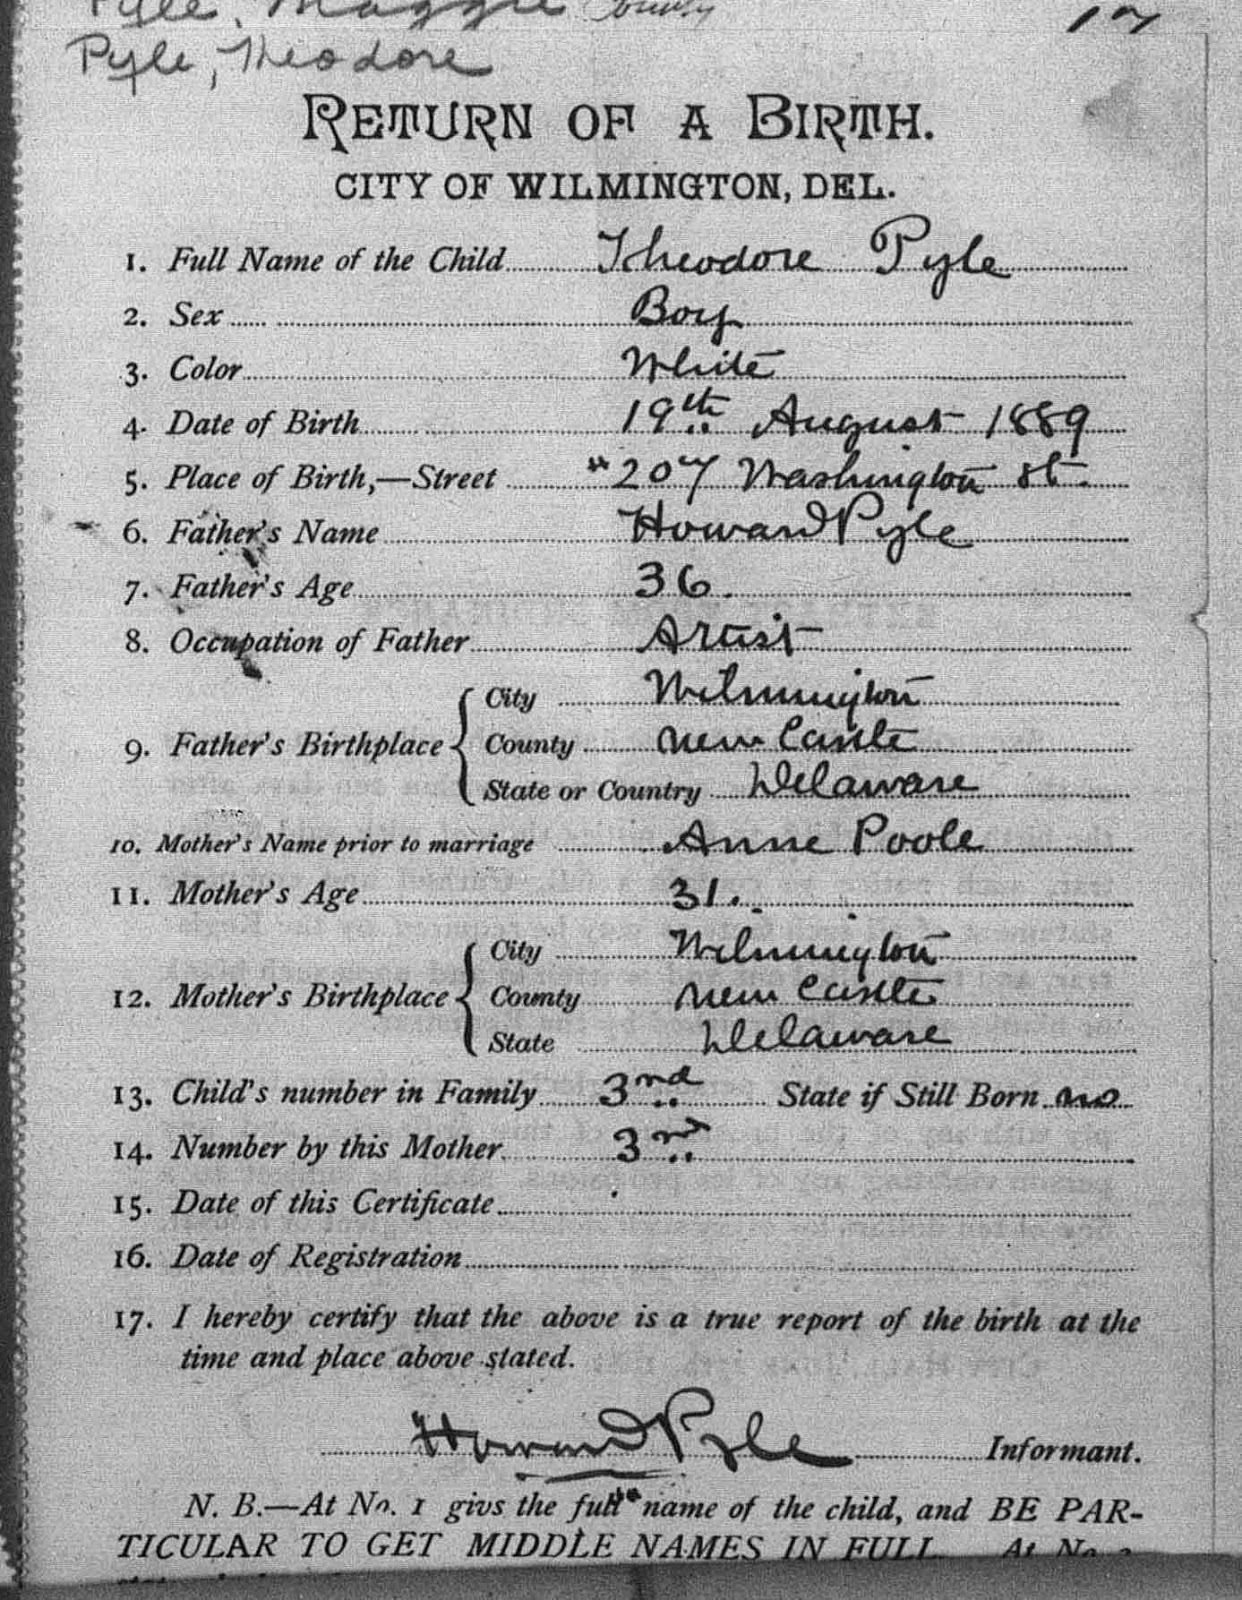 Pyle, Maggie County
17
Pyle, Theodore
RETURN OF A BIRTH.
CITY OF WILMINGTON, DEL.
1. Full Name of the Child Theodore Pyle
2. Sex Boy
3. Color White
4. Date of Birth 19th August 1889
5. Place of Birth,—Street "207 Washington St.
6. Father's Name Howard Pyle
7. Father's Age 36.
8. Occupation of Father Artist
City Wilmington
9. Father's Birthplace County New Castle
State or Country Delaware
10. Mother's Name prior to marriage Anne Poole
11. Mother's Age 31.
City Wilmington
12. Mother's Birthplace County New Castle
State Delaware
13. Child's number in Family 3rd State if Still Born no
14. Number by this Mother 3rd
15. Date of this Certificate
16. Date of Registration
17. I hereby certify that the above is a true report of the birth at the
time and place above stated.
Howard Pyle Informant.
N. B.—At No. 1 givs the full name of the child, and BE PAR-
TICULAR TO GET MIDDLE NAMES IN FULL. At No.